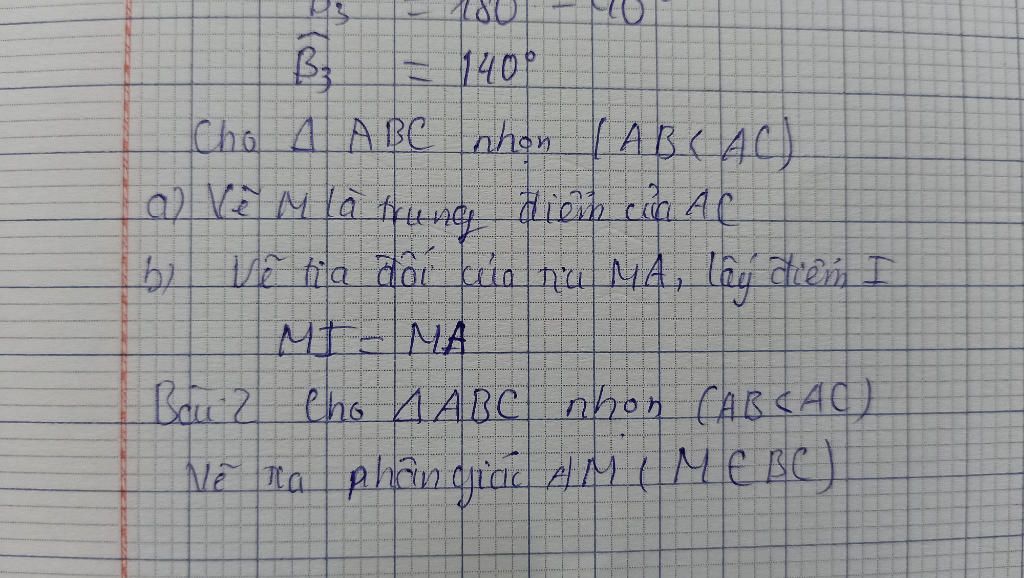 B̂3 = 180 - 40
B̂3 = 140°
Cho Δ ABC nhọn (AB < AC)
a) Vẽ M là trung điểm của AC
b) Vẽ tia đối của tia MA, lấy điểm I
MI = MA
Bài 2 Cho Δ ABC nhọn (AB < AC)
Vẽ tia phân giác AM (M ∈ BC)